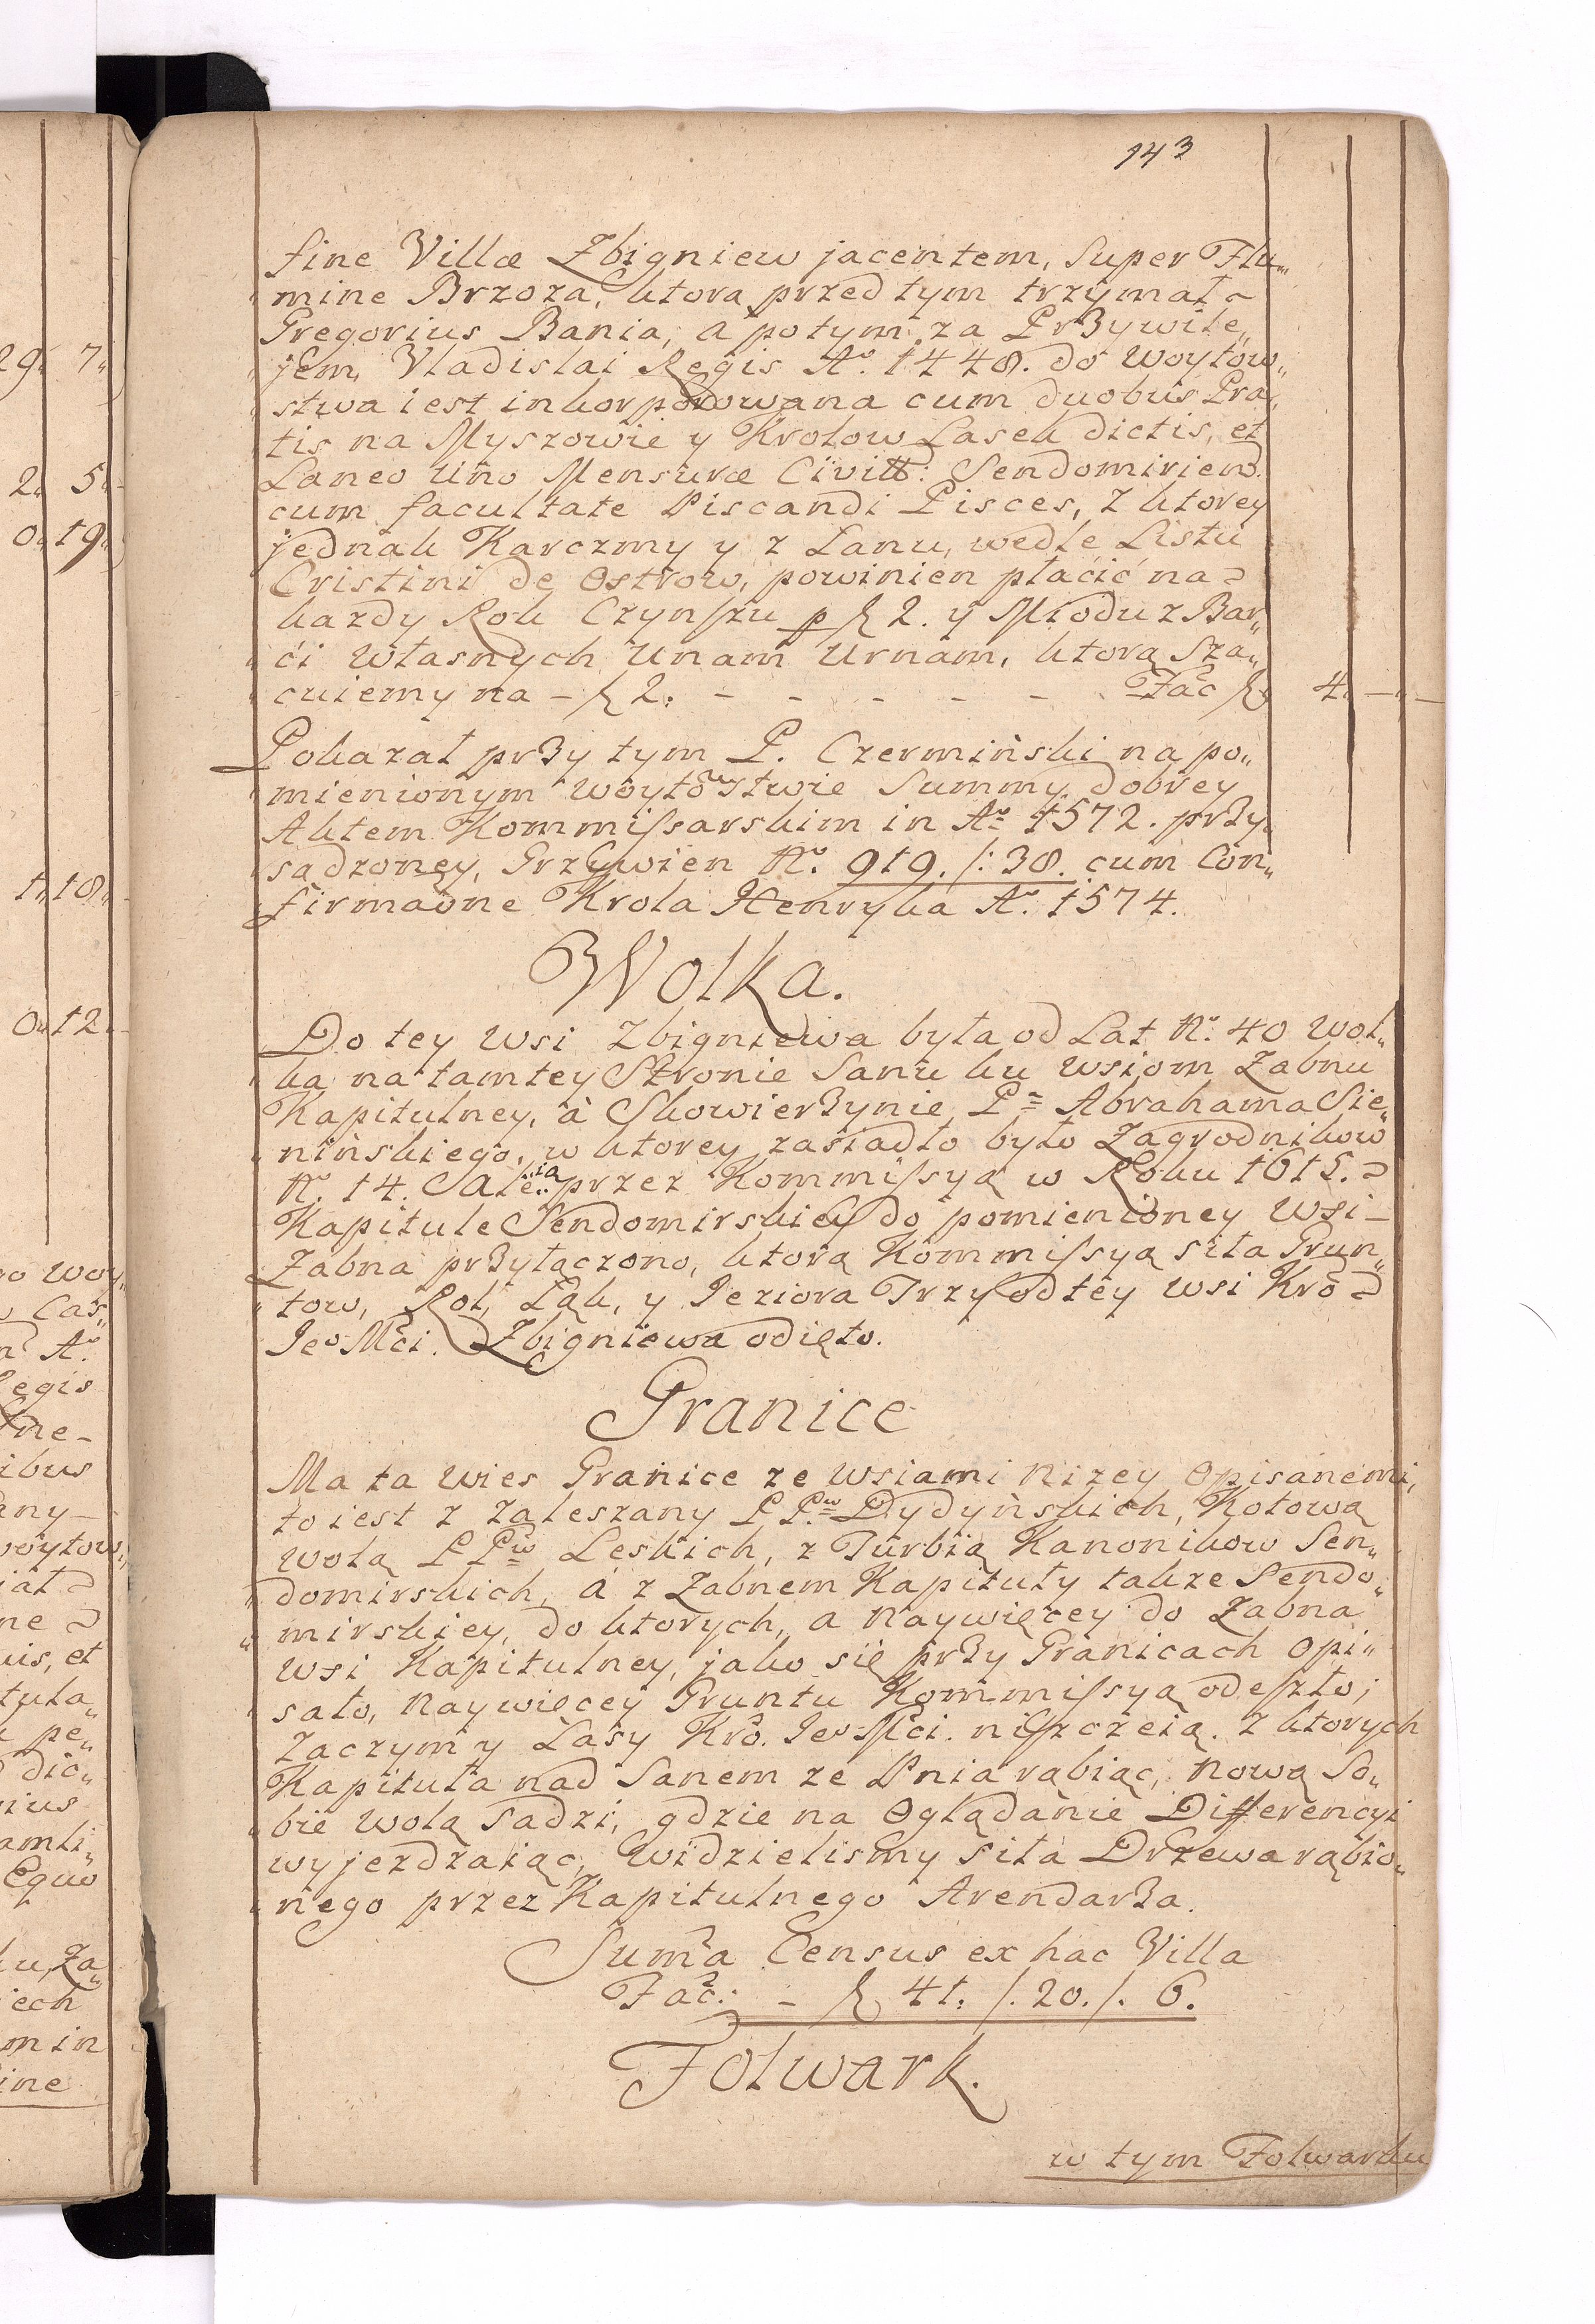 143
fine Villæ Zbigniew jacentem, Super Flu„
mine Brzoza, ktora przed tym trzymał
Gregorius Bania, a potym za Przywile„
jem Vladislai Regis Aº. 1448. do Woytow„
stwa iest inkorporowana cum duobus Pra„
tis na Myszowie y Krolow Lasek dictis, et
Laneo Uno Mensuræ Civitt: Sendomiriens.
cum facultate Piscandi Pisces, z ktorey
jednak Karczmy y z Łanu, wedle Listu
Cristini de Ostrow, powinien płacić na
kazdy Rok Czynszu p ƶ 2. y Miodu z Bar„
ći własnych Unam Urnam, ktorą Sza„
cuiemy na – ƶ 2. – – – – – Fać ƶ 4. – „ –
Pokazał przy tym P. Czermiński na po„
mienionym Woytowstwie Summy dobrey
Aktem Kommissarskim in Aº 1572. przy„
sadzoney, Grzywien Nº. 919. /: 38. cum Con„
firmaõne Krola Henryka Aº. 1574.
Wolka.
Do tey Wsi Zbigniewa była od Lat Nº. 40 Wol„
ka na tamtey Stronie Sanu ku Wsiom Zabnu
Kapitulney, á Skowierzynie Pª Abrahama Sie„
nińskiego, w ktorey zasiadło było Zagrodnikow
Nº. 14. Ale ią przez Kommissyą w Roku 1615.
Kapitule Sendomirskiey do pomienioney Wsi
Zabna przyłączono, ktorą Kommissyą siła Grun„
tow, Rol, Łąk, y Jeziora Trzy od tey Wsi Kro
Jeº Mći. Zbigniewa odięto.
Granice
Ma ta Wies Granice ze Wsiami nizey Opisanemi,
to iest z Zaleszany P Pʷ Dydyńskich, Kotową
Wolą P Pʷ Leskich, z Turbią Kanonikow Sen„
domirskich, á z Zabnem Kapituły takze Sendo„
mirskiey, do ktorych, a naywięcey do Zabna
Wsi Kapitulney, jako się przy Granicach Opi„
sało, naywięcey Gruntu Kommissyą odeszło;
Zaczym y Lasy Kró. Jeº Mći. niszczeią. z ktorych
Kapituła nad Sanem ze Pnia rąbiąc, nową So„
bie Wolą Sadzi, gdzie na Oglądanie Differencyi
wyjezdzaiąc, Widzielismy siła Drzewa rąbio„
nego przez Kapitulnego Arendarza.
Suma Census ex hac Villa
Fać: – ƶ 41. /. 20. /. 6.
Folwark.
w tym Folwarku